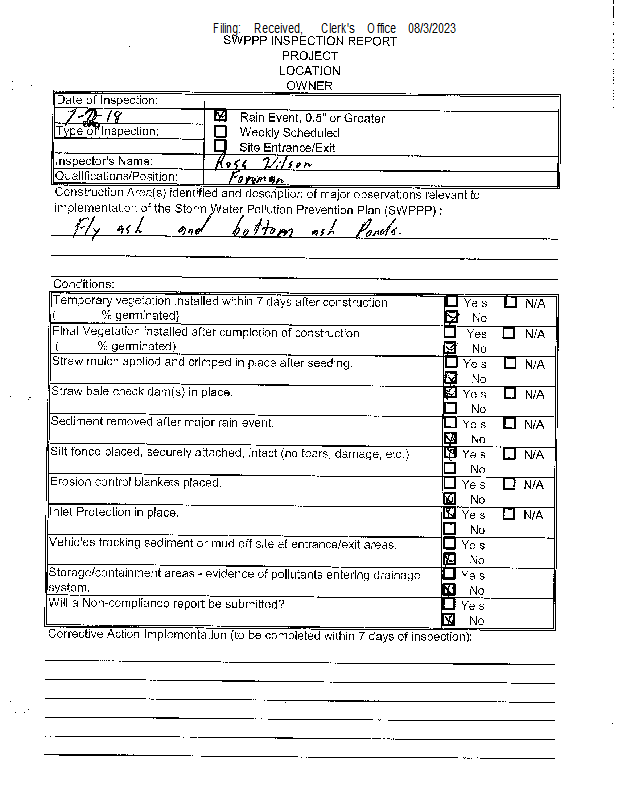 Filing: Received, Clerk's Office 08/3/2023
SWPPP INSPECTION REPORT
PROJECT
LOCATION
OWNER
Date of Inspection:
Type of Inspection:
☒ Rain Event, 0.5" or Greater
☐ Weekly Scheduled
☐ Site Entrance/Exit
Inspector's Name: Ross Wilson
Qualifications/Position: Foreman
Construction Area(s) identified and description of major observations relevant to
implementation of the Storm Water Pollution Prevention Plan (SWPPP) :
Fly ash and bottom ash Ponds.
Conditions:
Temporary vegetation installed within 7 days after construction ☐ Yes ☐ N/A
( % germinated) ☒ No
Final Vegetation installed after completion of construction ☐ Yes ☐ N/A
( % germinated) ☒ No
Straw mulch applied and crimped in place after seeding. ☐ Yes ☐ N/A
☒ No
Straw bale check dam(s) in place. ☒ Yes ☐ N/A
☐ No
Sediment removed after major rain event. ☐ Yes ☐ N/A
☒ No
Silt fence placed, securely attached, intact (no tears, damage, etc.) ☒ Yes ☐ N/A
☐ No
Erosion control blankets placed. ☐ Yes ☐ N/A
☒ No
Inlet Protection in place. ☒ Yes ☐ N/A
☐ No
Vehicles tracking sediment or mud off site at entrance/exit areas. ☐ Yes
☒ No
Storage/containment areas - evidence of pollutants entering drainage ☐ Yes
system. ☒ No
Will a Non-compliance report be submitted? ☐ Yes
☒ No
Corrective Action Implementation (to be completed within 7 days of inspection):